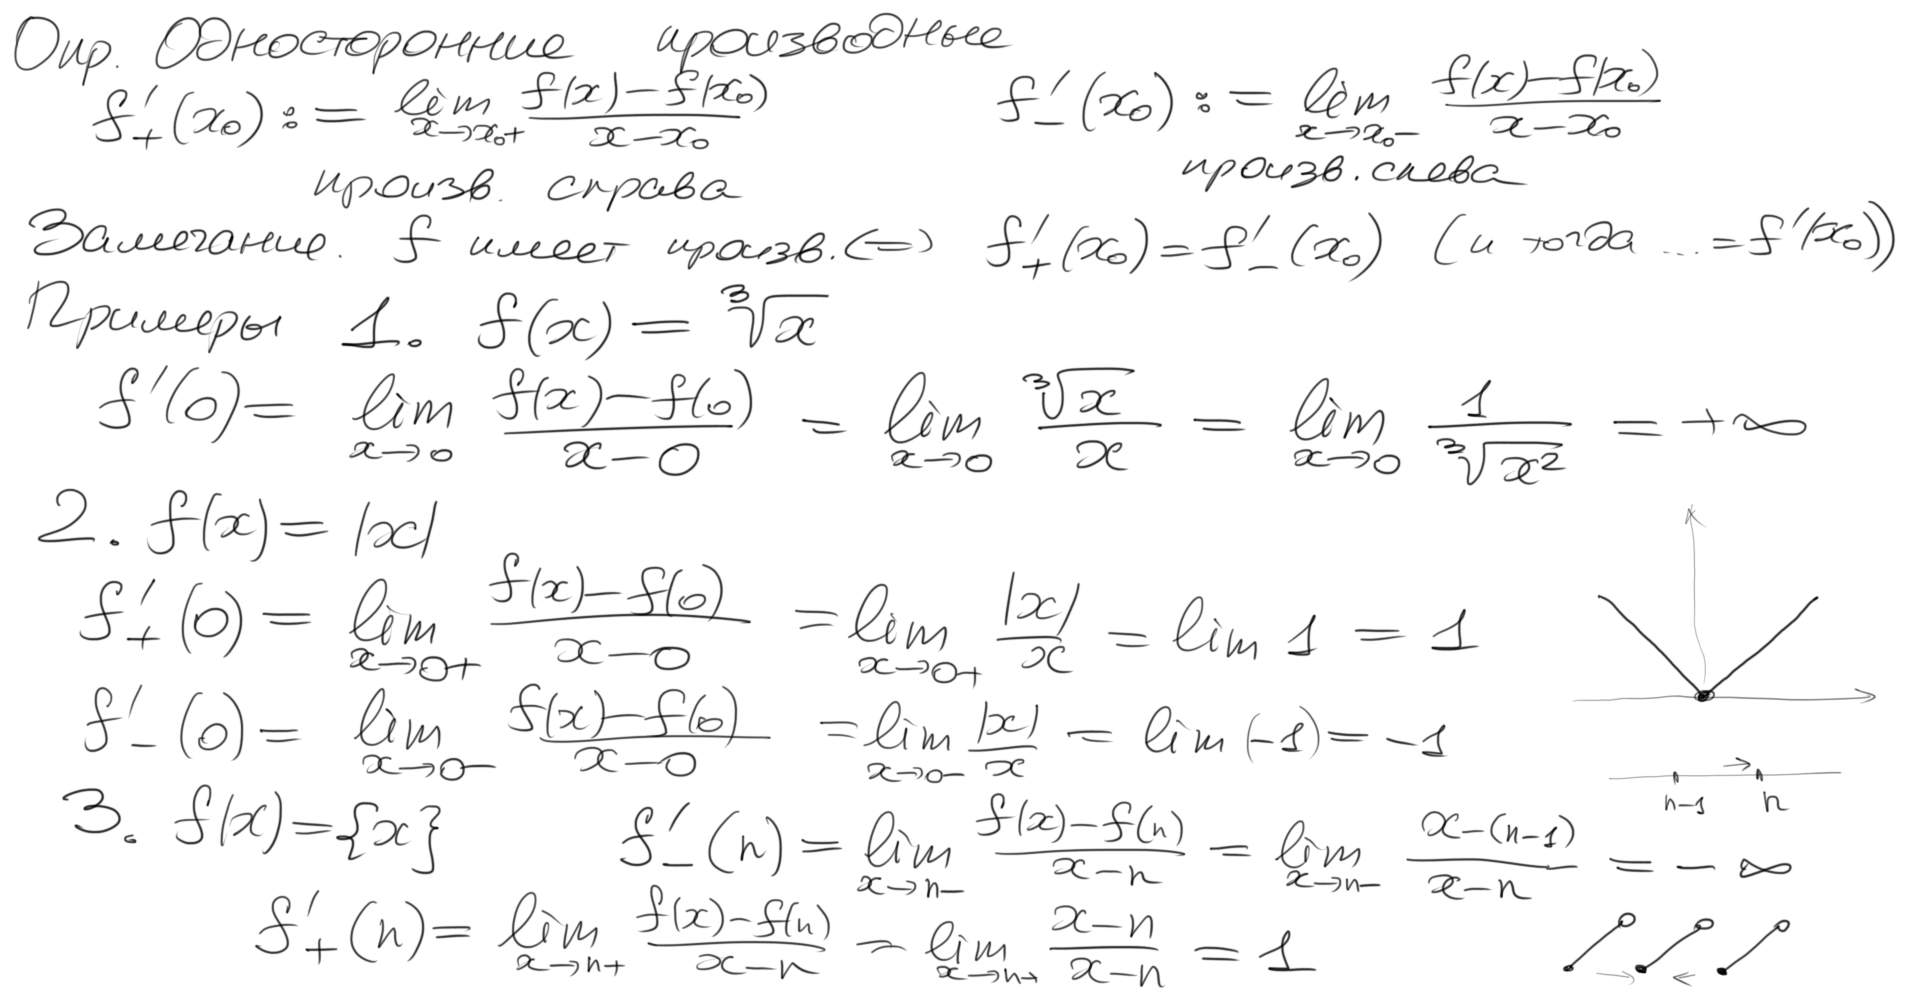 Опр. Односторонние производные
f'₊(x₀) := lim_{x→x₀+} (f(x)−f(x₀))/(x−x₀)    f'₋(x₀) := lim_{x→x₀−} (f(x)−f(x₀))/(x−x₀)
произв. справа    произв. слева
Замечание. f имеет произв. (=) f'₊(x₀) = f'₋(x₀) (и тогда ... = f'(x₀))
Примеры 1. f(x) = ∛x
f'(0) = lim_{x→0} (f(x)−f(0))/(x−0) = lim_{x→0} ∛x/x = lim_{x→0} 1/∛(x²) = +∞
2. f(x) = |x|
f'₊(0) = lim_{x→0+} (f(x)−f(0))/(x−0) = lim_{x→0+} |x|/x = lim 1 = 1
f'₋(0) = lim_{x→0−} (f(x)−f(0))/(x−0) = lim_{x→0−} |x|/x = lim (−1) = −1
n−1    n
3. f(x) = {x}    f'₋(n) = lim_{x→n−} (f(x)−f(n))/(x−n) = lim_{x→n−} (x−(n−1))/(x−n) = −∞
f'₊(n) = lim_{x→n+} (f(x)−f(n))/(x−n) = lim_{x→n+} (x−n)/(x−n) = 1